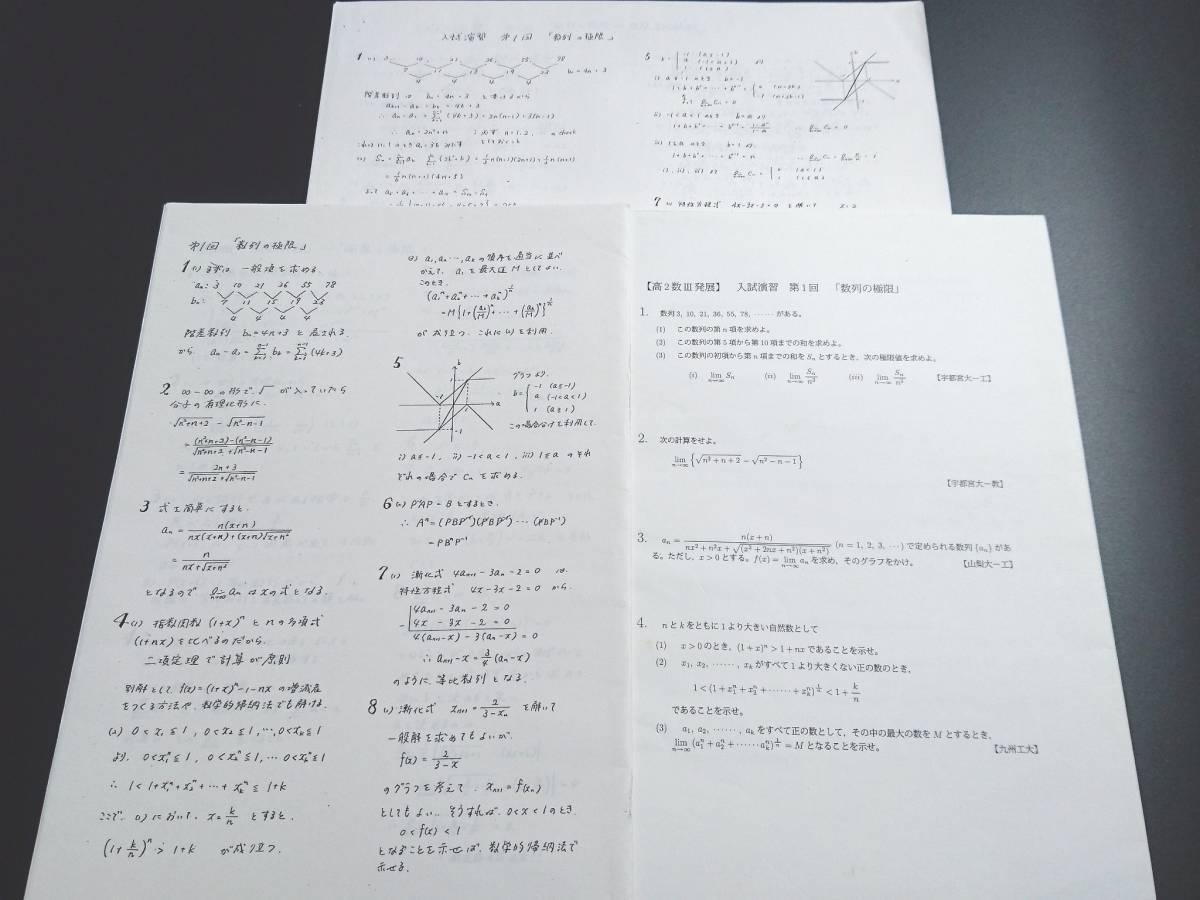 入試演習 第1回 「数列の極限」
1 (1) 3 10 21 36 55 78
7 11 15 19 23 bₙ=4n+3
4 4 4 4
第1回 「数列の極限」
1 (1) まずは 一般項を求める。
aₙ: 3 10 21 36 55 78
bₙ: 7 11 15 19 23
4 4 4 4
階差数列 bₙ=4n+3 と表される
から aₙ-a₁=Σbₖ=Σ(4k+3)
2 ∞-∞の形で√が入っていたら
分子の有理化形に.
√n²+n+2 - √n²-n-1
= (n²+n+2)-(n²-n-1) / √n²+n+2 + √n²-n-1
= 2n+3 / √n²+n+2 + √n²-n-1
3 式を簡単にすると.
aₙ = n(x+n) / nx(x+n)+(x+n)√x+n²
= n / nx+√x+n²
となるので lim aₙ はxの式となる.
4 (1) 指数関数 (1+x)ⁿ とnの多項式
(1+nx)を比べるのだから
二項定理で計算が原則
別解として f(x)=(1+x)ⁿ-1-nx の増減表
をつくる方法や、数学的帰納法でも解ける.
(2) 0<x₁≦1, 0<x₂≦1, …, 0<xₖ≦1
より, 0<x₁ⁿ≦1, 0<x₂ⁿ≦1, … 0<xₖⁿ≦1
∴ 1<1+x₁ⁿ+x₂ⁿ+…+xₖⁿ≦1+k
ここで, (1)において, x=k/n とすると.
(1+k/n)ⁿ>1+k が成り立つ.
(3) a₁,a₂…,aₖの順序を適当に並べ
かえて, a₁を最大値Mとしてよい.
このとき.
(a₁ⁿ+a₂ⁿ+…+aₖⁿ)^(1/n)
=M{1+(a₂/M)ⁿ+…+(aₖ/M)ⁿ}^(1/n)
が成り立つ. これに(2)を利用.
5
グラフより.
b={ -1 (a≦-1)
a (-1<a<1)
1 (a≧1)
この場合分けを利用して.
i) a≦-1, ii) -1<a<1, iii) 1≦a のそれ
ぞれの場合で Cₙ を求める.
6 (2) P⁻¹AP=B とするとき.
∴ Aⁿ=(PBP⁻¹)(PBP⁻¹)…(PBP⁻¹)
=PBⁿP⁻¹
7 (1) 漸化式 4aₙ₊₁-3aₙ-2=0 は.
特性方程式 4x-3x-2=0 から.
4aₙ₊₁-3aₙ-2=0
- 4x-3x-2=0
4(aₙ₊₁-x)-3(aₙ-x)=0
∴ aₙ₊₁-x=3/4(aₙ-x)
のように, 等比数列となる.
8 (1) 漸化式 xₙ₊₁=2/3-xₙ を解いて
一般解を求めてもよいが.
f(x)=2/3-x
のグラフを考えて. xₙ₊₁=f(xₙ)
としてもよい.. そうすれば, 0<x<1のとき,
0<f(x)<1
となることを示せば, 数学的帰納法で
示せる.
【高2数III発展】 入試演習 第1回 「数列の極限」
1. 数列 3, 10, 21, 36, 55, 78, …… がある。
(1) この数列の第 n 項を求めよ。
(2) この数列の第5項から第10項までの和を求めよ。
(3) この数列の初項から第 n 項までの和を Sₙ とするとき、次の極限値を求めよ。
(i) lim n→∞ Sₙ (ii) lim n→∞ Sₙ/n² (iii) lim n→∞ Sₙ/n³ 【宇都宮大ー工】
2. 次の計算をせよ。
lim n→∞ {√n²+n+2 - √n²-n-1}
【宇都宮大ー教】
3. aₙ = n(x+n) / nx²+n²x+√(x²+2nx+n²)(x+n²) (n = 1, 2, 3, …) で定められる数列 {aₙ} があ
る。ただし、x > 0 とする。f(x) = lim n→∞ aₙ を求め、そのグラフをかけ。 【山梨大ー工】
4. n と k をともに1より大きい自然数として
(1) x > 0 のとき、(1+x)ⁿ > 1+nx であることを示せ。
(2) x₁, x₂, ……, xₖ がすべて1より大きくない正の数のとき、
1 < (1+x₁ⁿ+x₂ⁿ+……+xₖⁿ)^(1/n) < 1+k/n
であることを示せ。
(3) a₁, a₂, ……, aₖ をすべて正の数として、その中の最大の数を M とするとき、
lim n→∞ (a₁ⁿ+a₂ⁿ+……aₖⁿ)^(1/n) = M となることを示せ。 【九州工大】